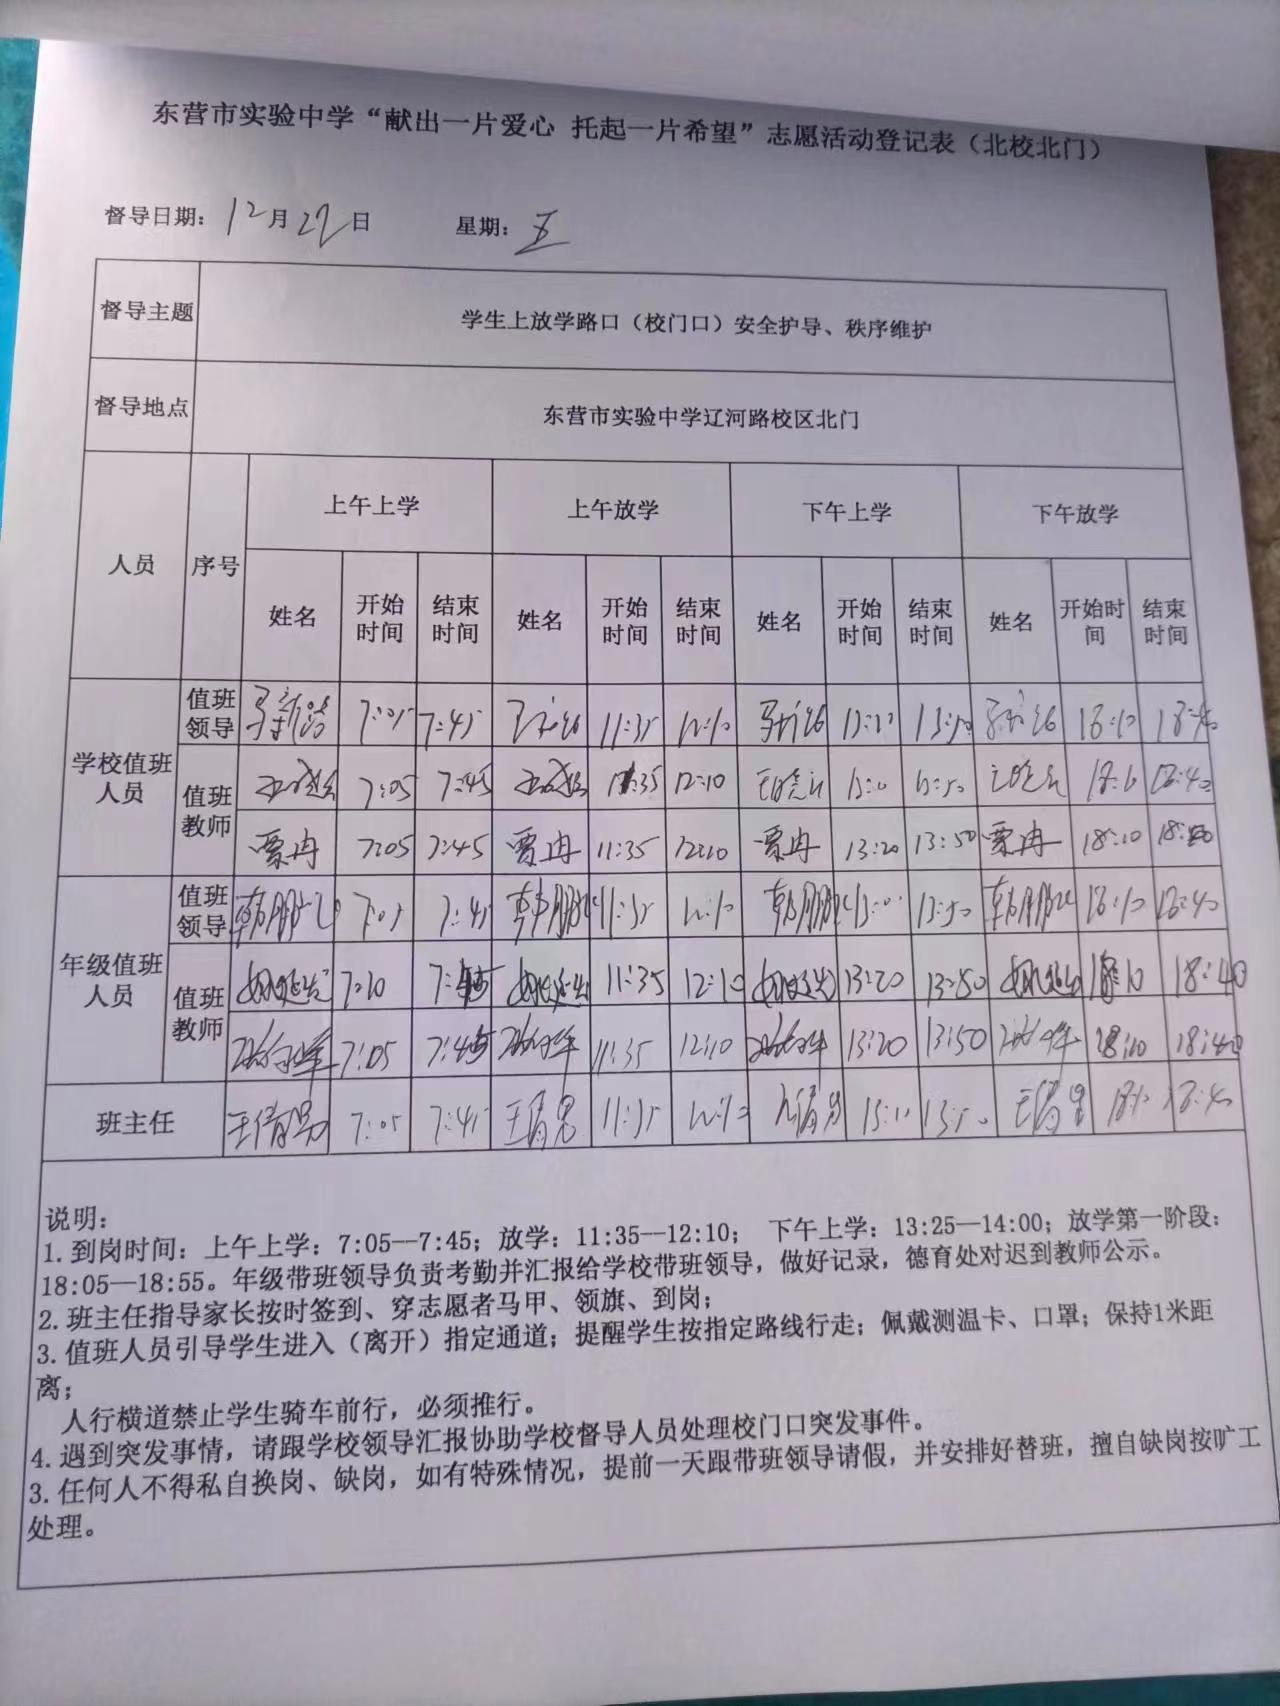 东营市实验中学“献出一片爱心 托起一片希望”志愿活动登记表（北校北门）
督导日期：12月 日 星期：五
督导主题 学生上放学路口（校门口）安全护导、秩序维护
督导地点 东营市实验中学辽河路校区北门
人员 序号 上午上学 上午放学 下午上学 下午放学
姓名 开始时间 结束时间 姓名 开始时间 结束时间 姓名 开始时间 结束时间 姓名 开始时间 结束时间
学校值班人员
值班领导 7:05 7:45 11:35
值班教师 7:05 7:45 11:35 12:10
贾冉 7:05 7:45 贾冉 11:35 12:10 贾冉 13:20 13:50 贾冉 18:10
年级值班人员
值班领导 7:05 7:45 11:35 13:50 18:10 18:40
值班教师 7:10 11:35 12:10 13:20 13:50 18:10 18:40
7:05 7:45 11:35 12:10 13:20 13:50 18:10 18:40
班主任 7:05 7:45 11:35 13:50 18:40
说明：
1.到岗时间：上午上学：7:05—7:45；放学：11:35—12:10； 下午上学：13:25—14:00；放学第一阶段：
18:05—18:55。年级带班领导负责考勤并汇报给学校带班领导，做好记录，德育处对迟到教师公示。
2.班主任指导家长按时签到、穿志愿者马甲、领旗、到岗；
3.值班人员引导学生进入（离开）指定通道；提醒学生按指定路线行走；佩戴测温卡、口罩；保持1米距
离；
人行横道禁止学生骑车前行，必须推行。
4.遇到突发事情，请跟学校领导汇报协助学校督导人员处理校门口突发事件。
3.任何人不得私自换岗、缺岗，如有特殊情况，提前一天跟带班领导请假，并安排好替班，擅自缺岗按旷工
处理。